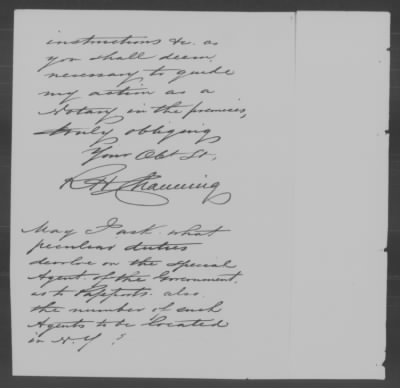 instructions &c. as
you shall deem
necessary to guide
my action as a
Notary in the premises,
truly obliging
Your Obt St,
R H Channing
May I ask what
peculiar duties
devolve on the Special
Agent of the Government
as to Passports. also
the number of such
Agents to be located
in N.Y ?